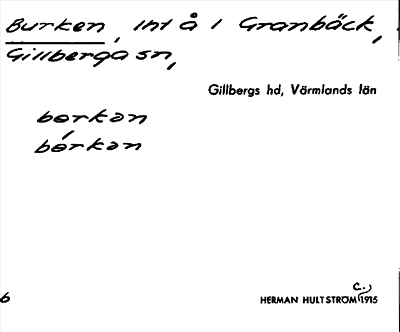 Burken, Int å i Granbäck,
Gillberga sn,
Gillbergs hd, Värmlands län
borkan
bórkan
6
HERMAN HULTSTRÖM c. 1915